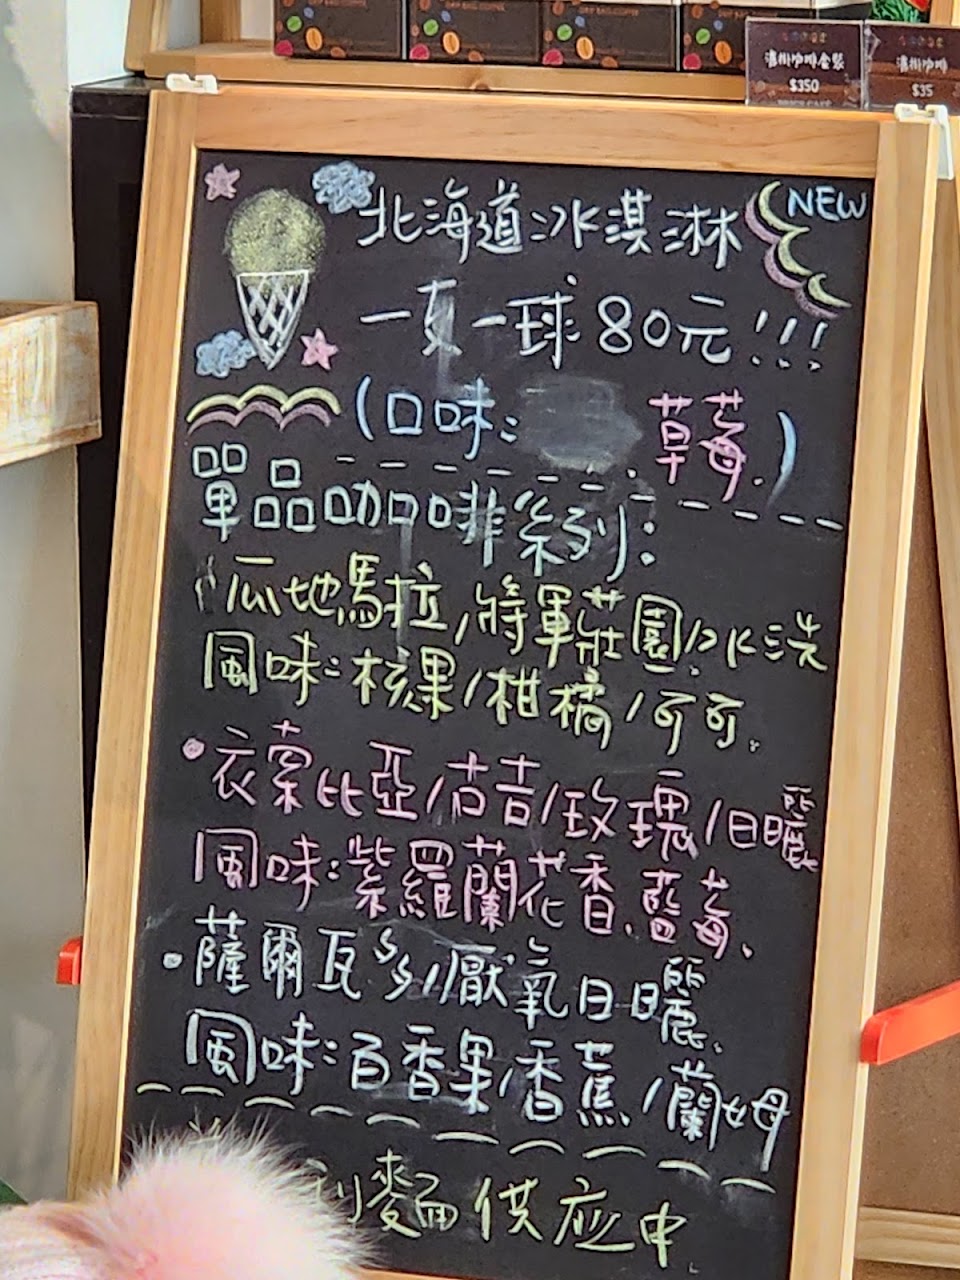 濾掛咖啡盒裝
$350
濾掛咖啡
$35
NEW
北海道冰淇淋
一支一球80元!!!
(口味: 草莓.)
單品咖啡系列:
瓜地馬拉/將軍莊園/水洗
風味:核果/柑橘/可可.
•衣索比亞/古吉/玫瑰/日曬
風味:紫羅蘭花香.藍莓、
•薩爾瓦多/厭氧日曬.
風味:百香果/香蕉/蘭姆
麵供应中.